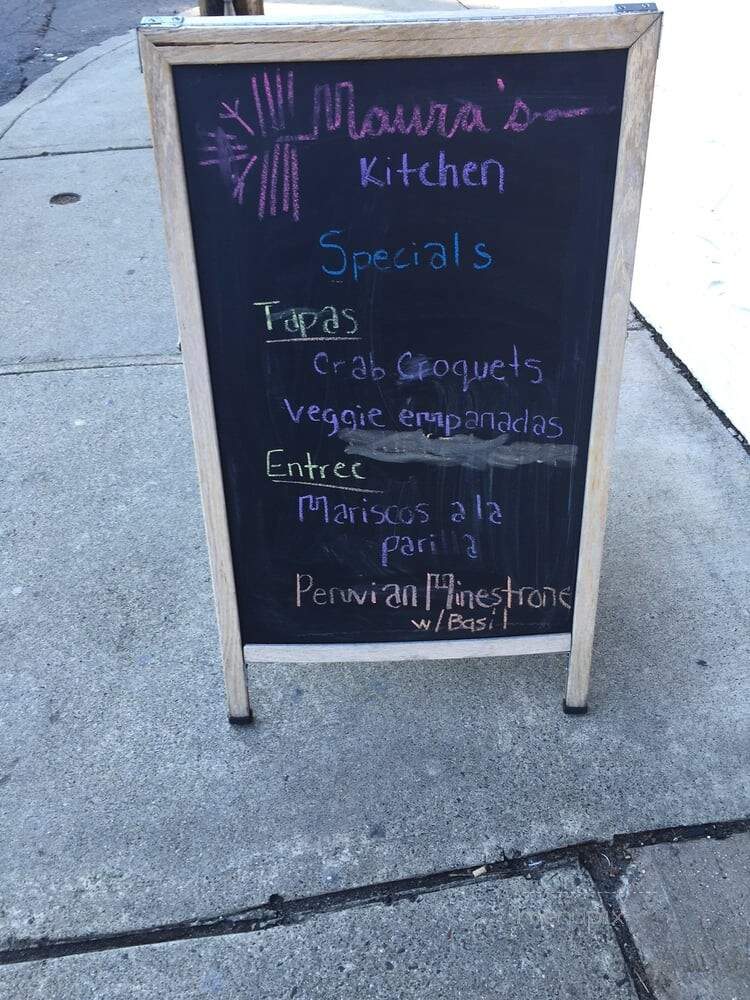 Maura's
Kitchen
Specials
Tapas
Crab Croquets
Veggie empanadas
Entree
Mariscos a la
parilla
Peruvian Minestrone
w/Basil